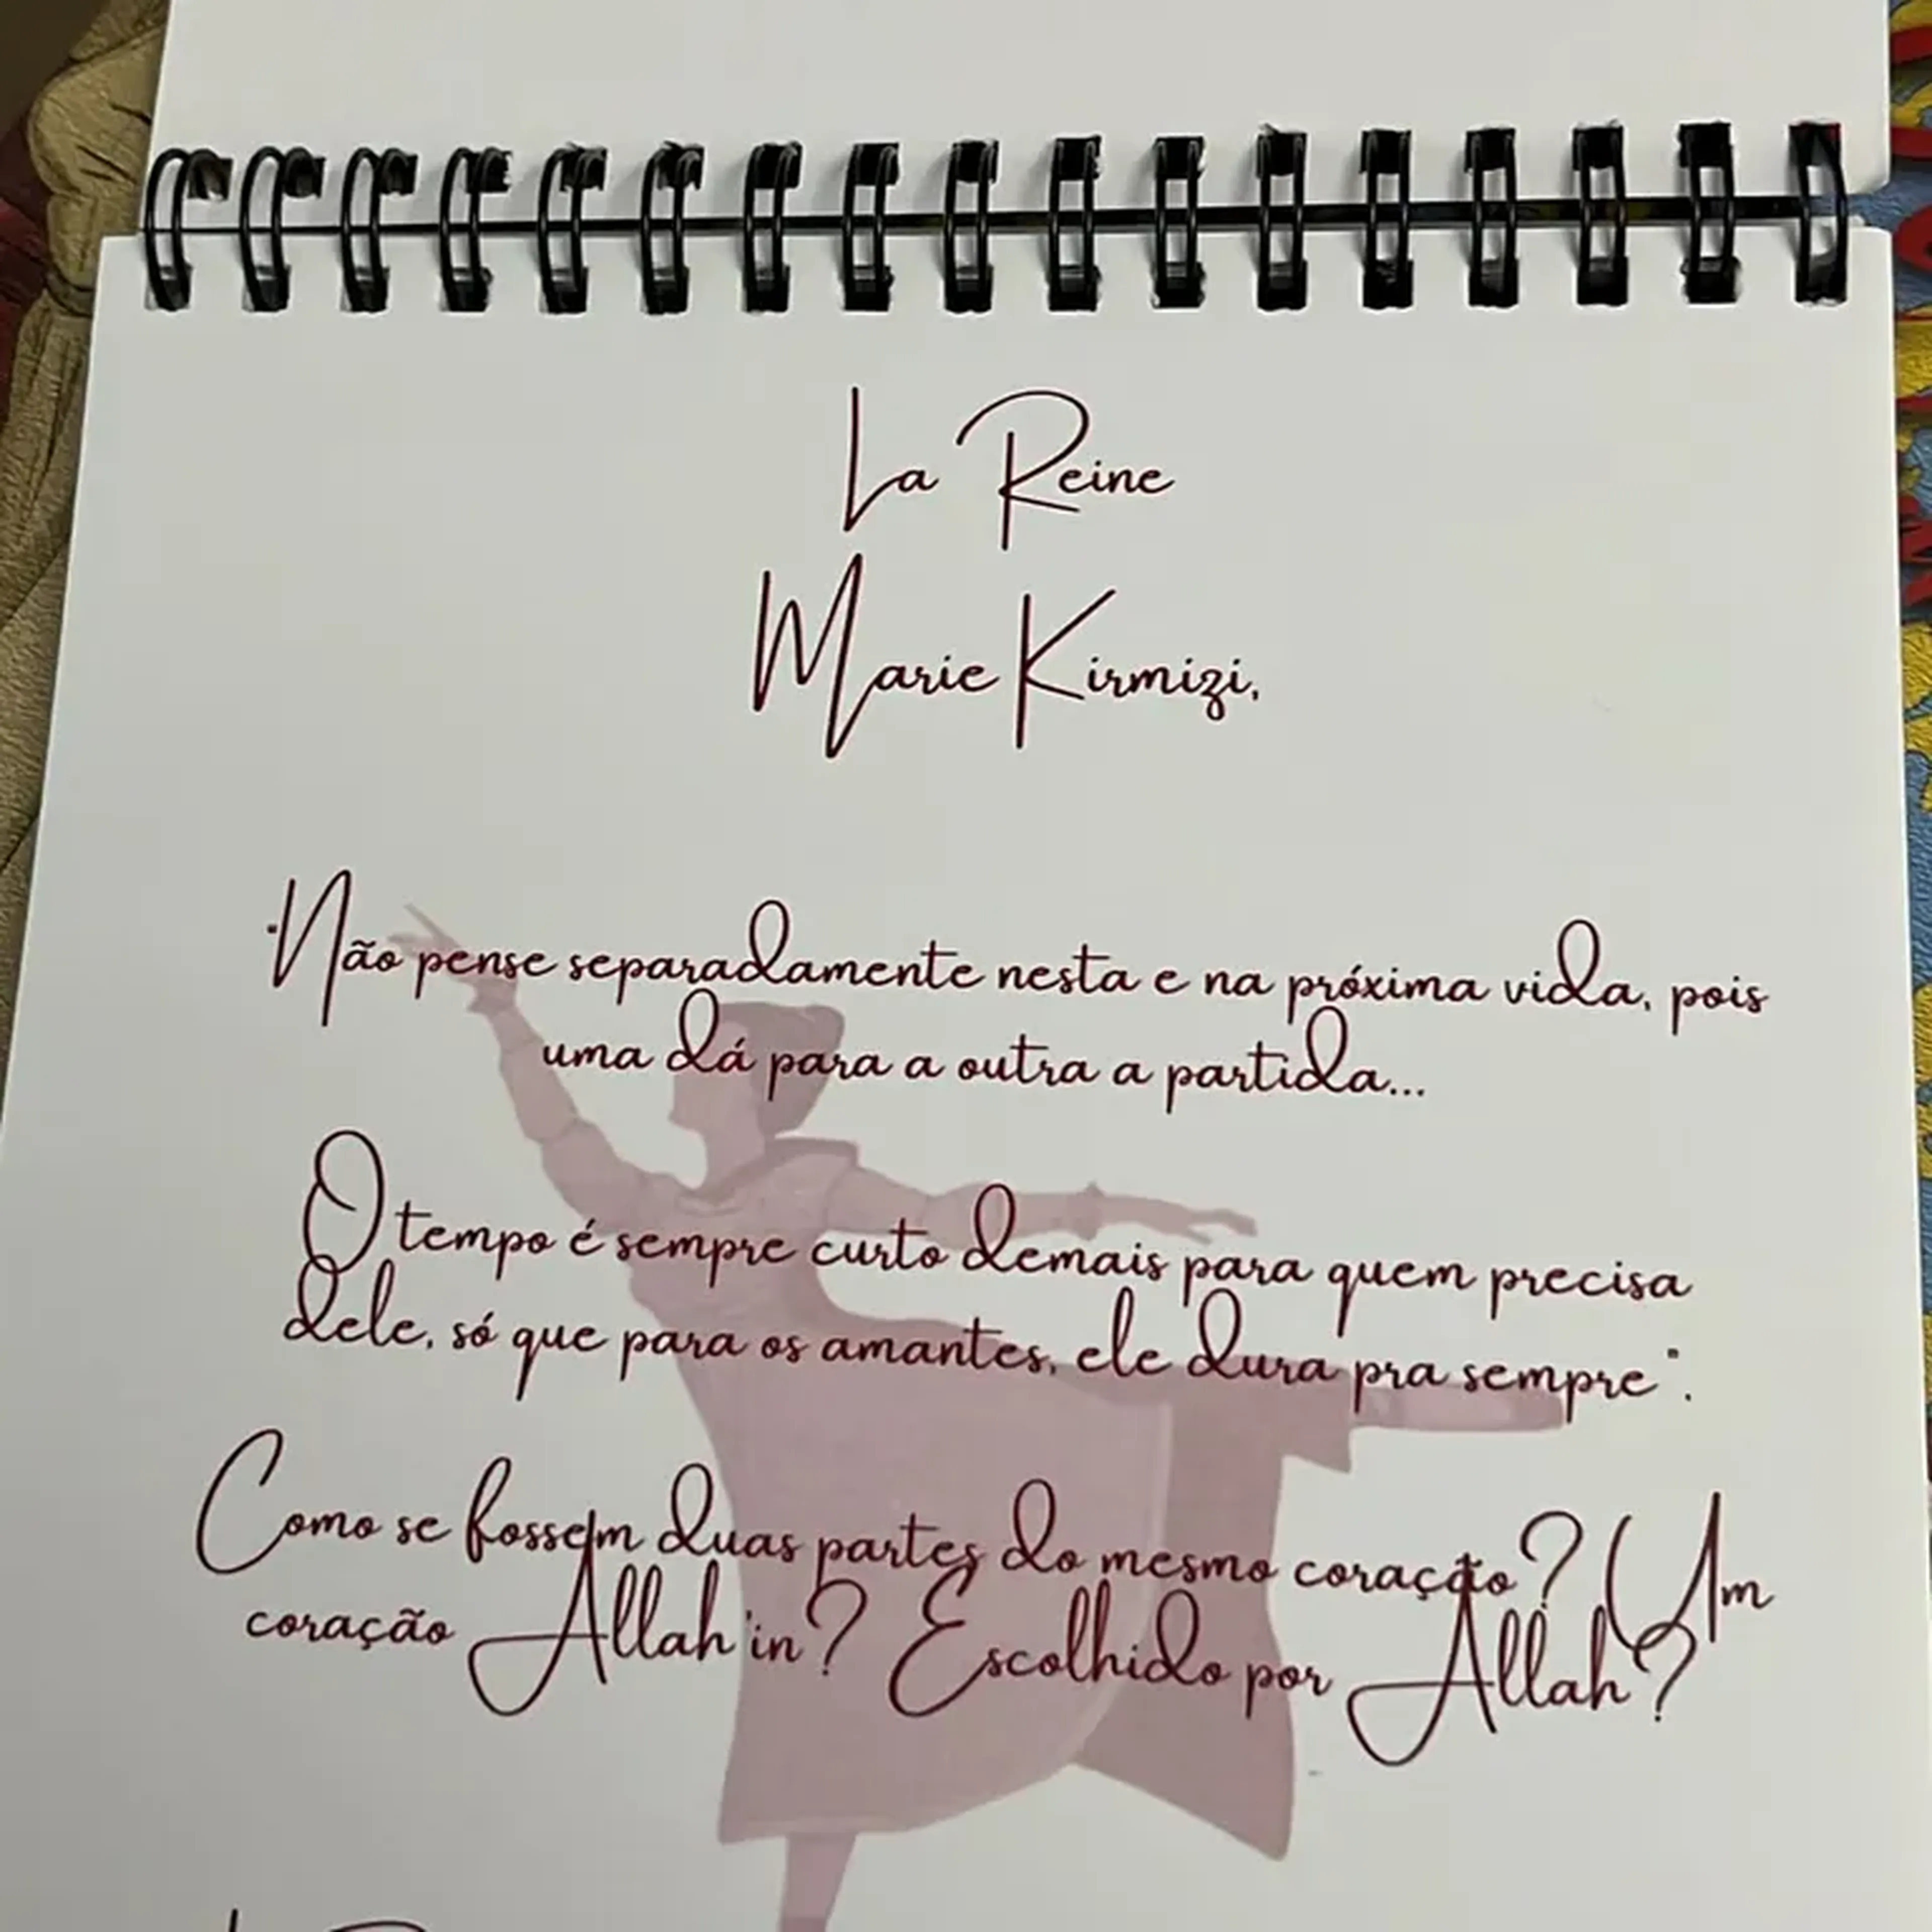 La Reine
Marie Kirmizi,
"Não pense separadamente nesta e na próxima vida, pois
uma dá para a outra a partida...
O tempo é sempre curto demais para quem precisa
dele, só que para os amantes, ele dura pra sempre".
Como se fossem duas partes do mesmo coração? Um
coração Allah'in? Escolhido por Allah?